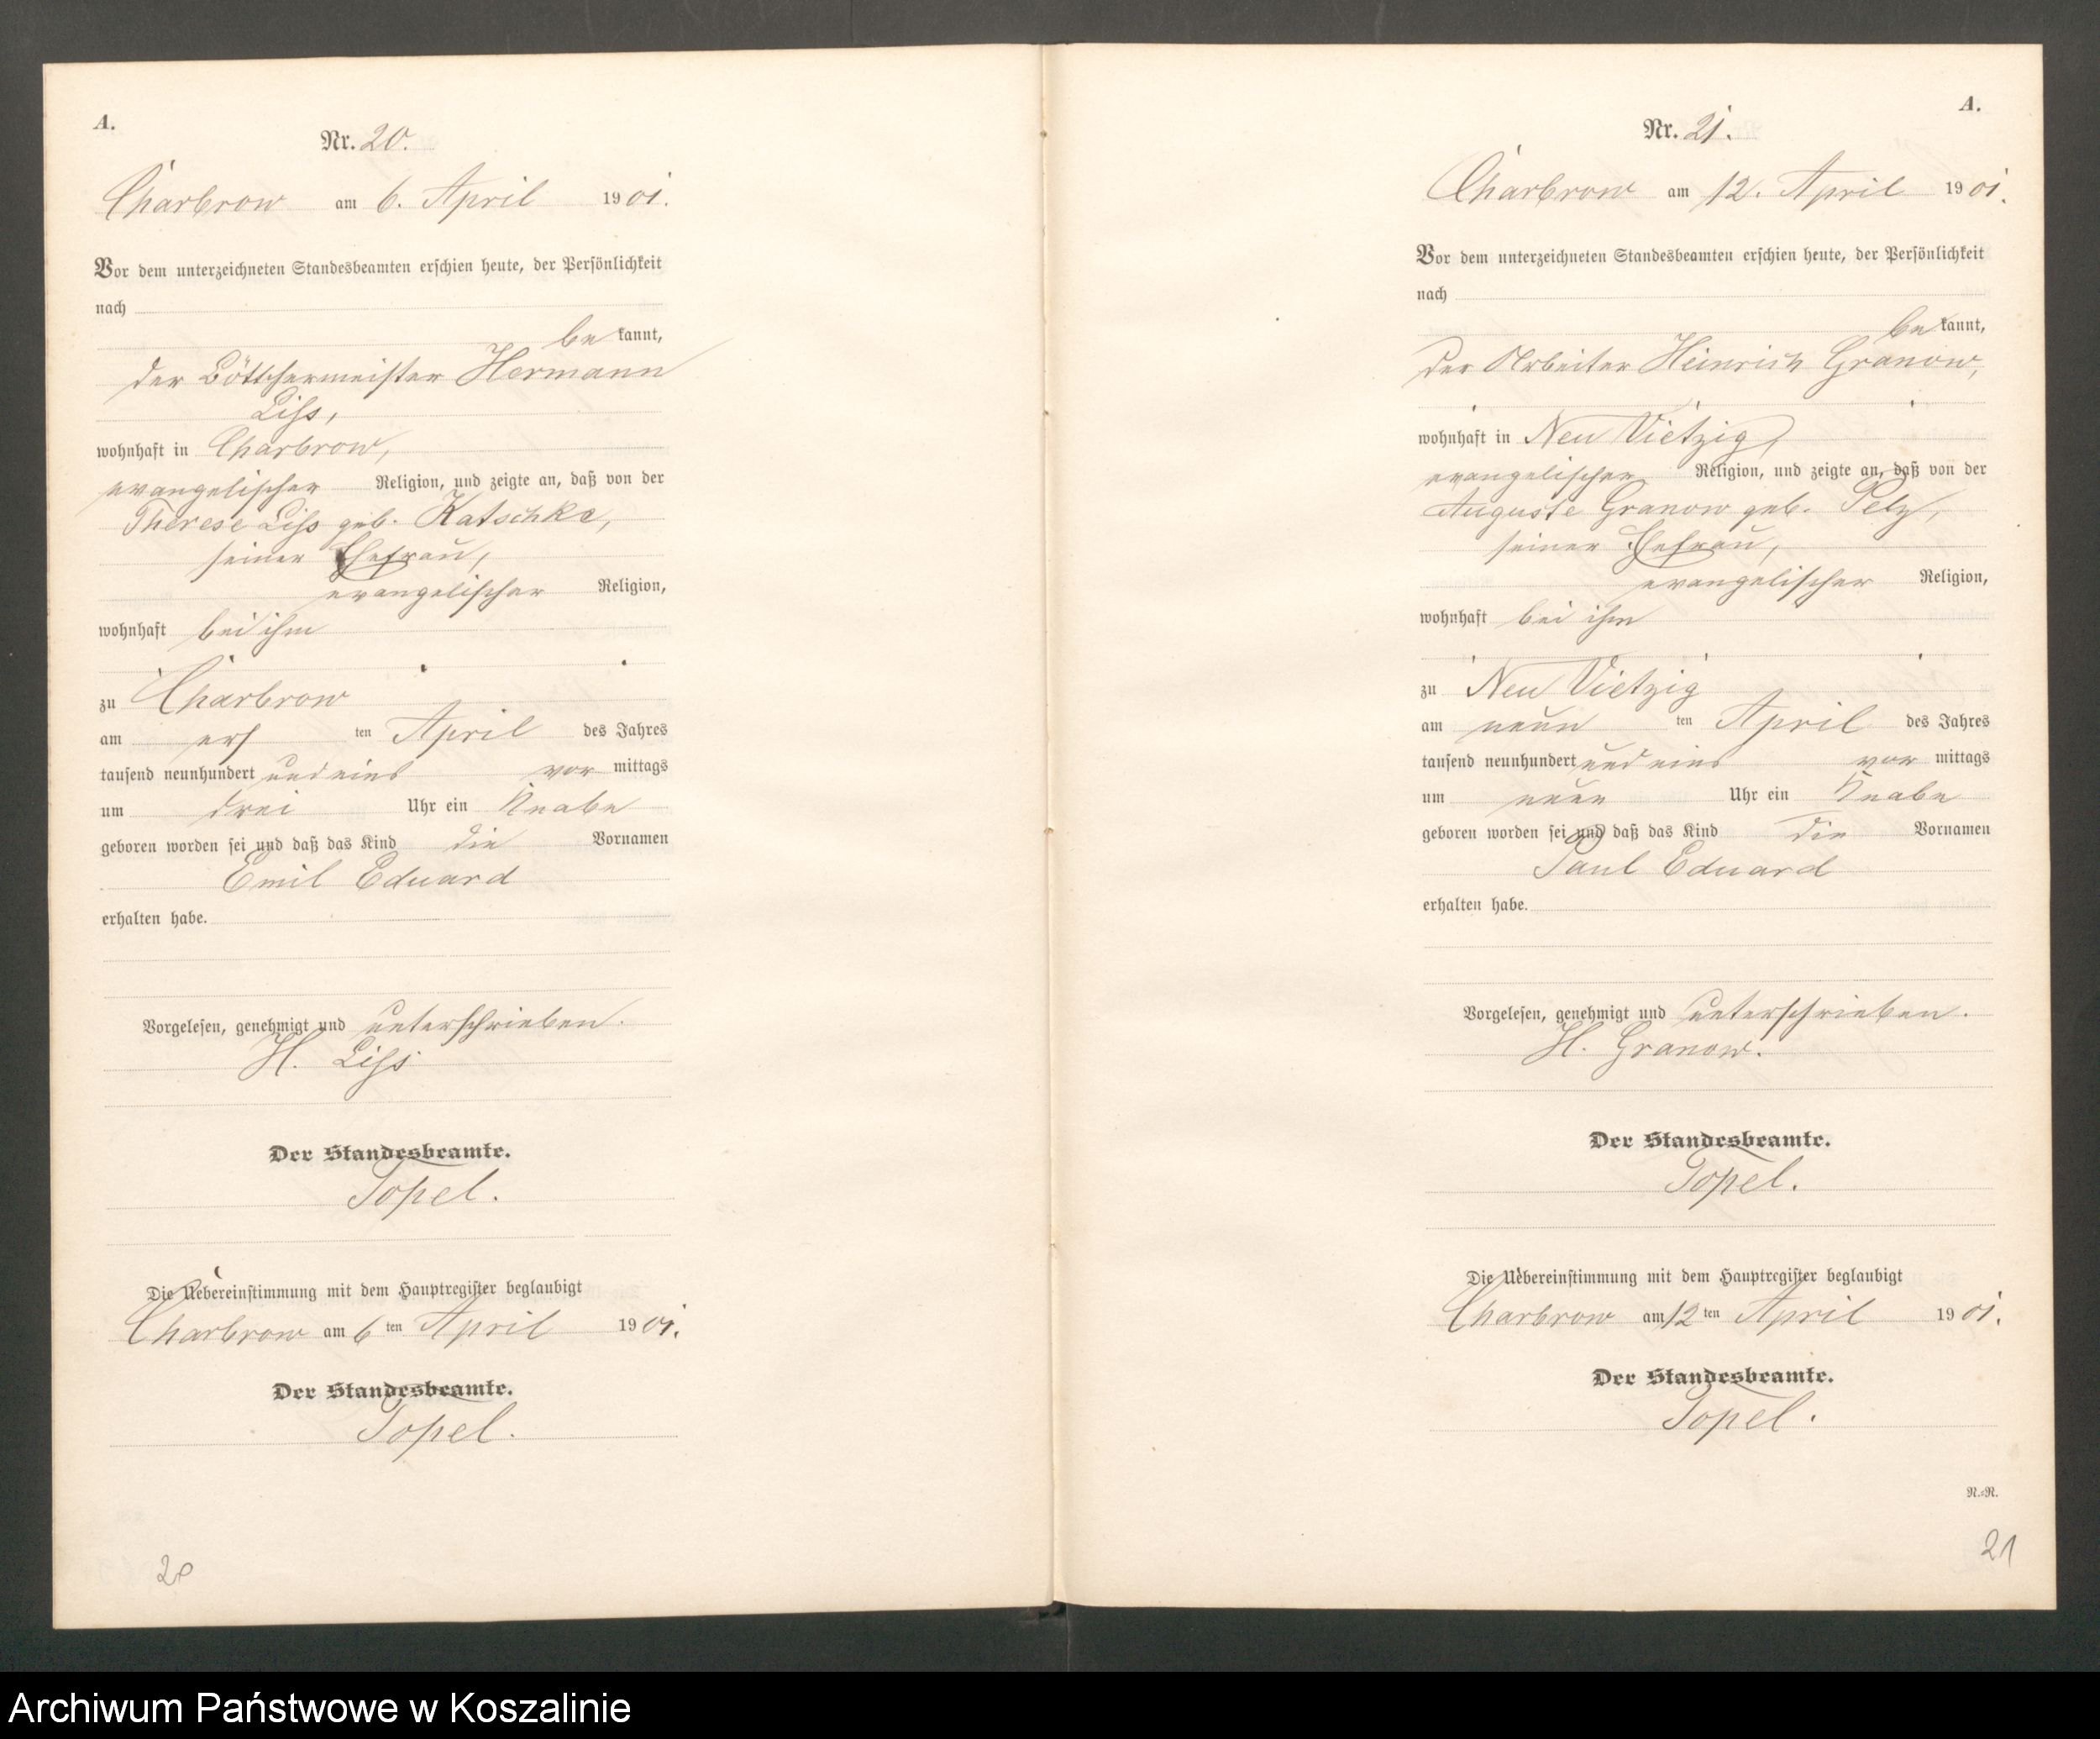 A.
Nr. 20.
Charbrow am 6. April 1901.
Vor dem unterzeichneten Standesbeamten erschien heute, der Persönlichkeit
nach
be kannt,
der Böttchermeister Hermann
Liss,
wohnhaft in Charbrow,
evangelischer Religion, und zeigte an, daß von der
Therese Liss geb. Katschke,
seiner Ehefrau,
evangelischer Religion,
wohnhaft bei ihm
zu Charbrow
am ers ten April des Jahres
tausend neunhundert und eins vor mittags
um drei Uhr ein Knabe
geboren worden sei und daß das Kind die Vornamen
Emil Eduard
erhalten habe.
Vorgelesen, genehmigt und unterschrieben.
H. Liss
Der Standesbeamte.
Topel.
Die Uebereinstimmung mit dem Hauptregister beglaubigt
Charbrow am 6 ten April 1901.
Der Standesbeamte.
Topel.
20
A.
Nr. 21.
Charbrow am 12. April 1901.
Vor dem unterzeichneten Standesbeamten erschien heute, der Persönlichkeit
nach
be kannt,
der Arbeiter Heinrich Granow,
wohnhaft in Neu Vietzig,
evangelischer Religion, und zeigte an, daß von der
Auguste Granow geb. Pelz,
seiner Ehefrau,
evangelischer Religion,
wohnhaft bei ihm
zu Neu Vietzig
am neun ten April des Jahres
tausend neunhundert und eins vor mittags
um neun Uhr ein Knabe
geboren worden sei und daß das Kind die Vornamen
Paul Eduard
erhalten habe.
Vorgelesen, genehmigt und unterschrieben.
H. Granow.
Der Standesbeamte.
Topel.
Die Uebereinstimmung mit dem Hauptregister beglaubigt
Charbrow am 12 ten April 1901.
Der Standesbeamte.
Topel.
R.=R.
21
Archiwum Państwowe w Koszalinie